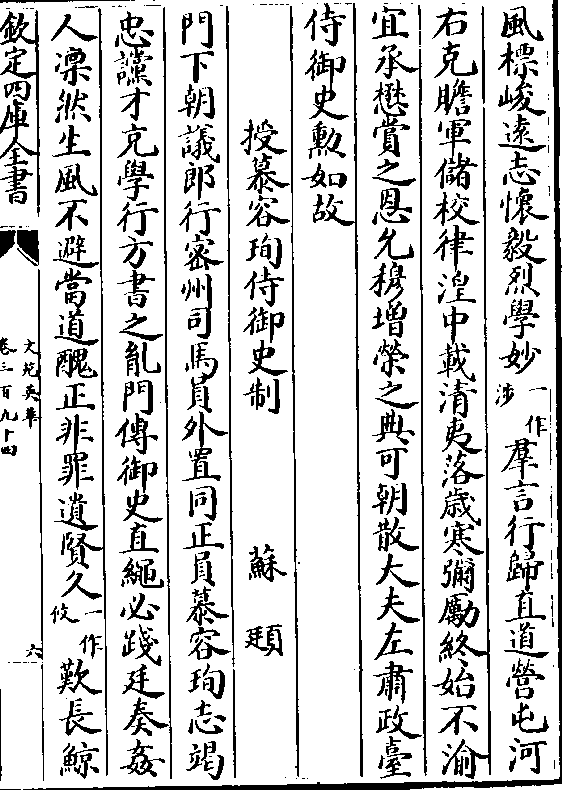 風標峻遠志懷毅烈學妙一作涉羣言行歸直道營屯河
右克贍軍儲校律湟中載清夷落歲寒彌勵終始不渝
宜承懋賞之恩允穆增榮之典可朝散大夫左肅政臺
侍御史勲如故
授慕容珣侍御史制 蘇頲
門下朝議郎行密州司馬員外置同正員慕容珣志竭
忠讜才克學行方書之亂門傳御史直繩必踐廷奏姦
人凛然生風不避當道醜正非罪遺賢久一作攸歎長鯨
欽定四庫全書
文苑英華
卷三百九十四
六